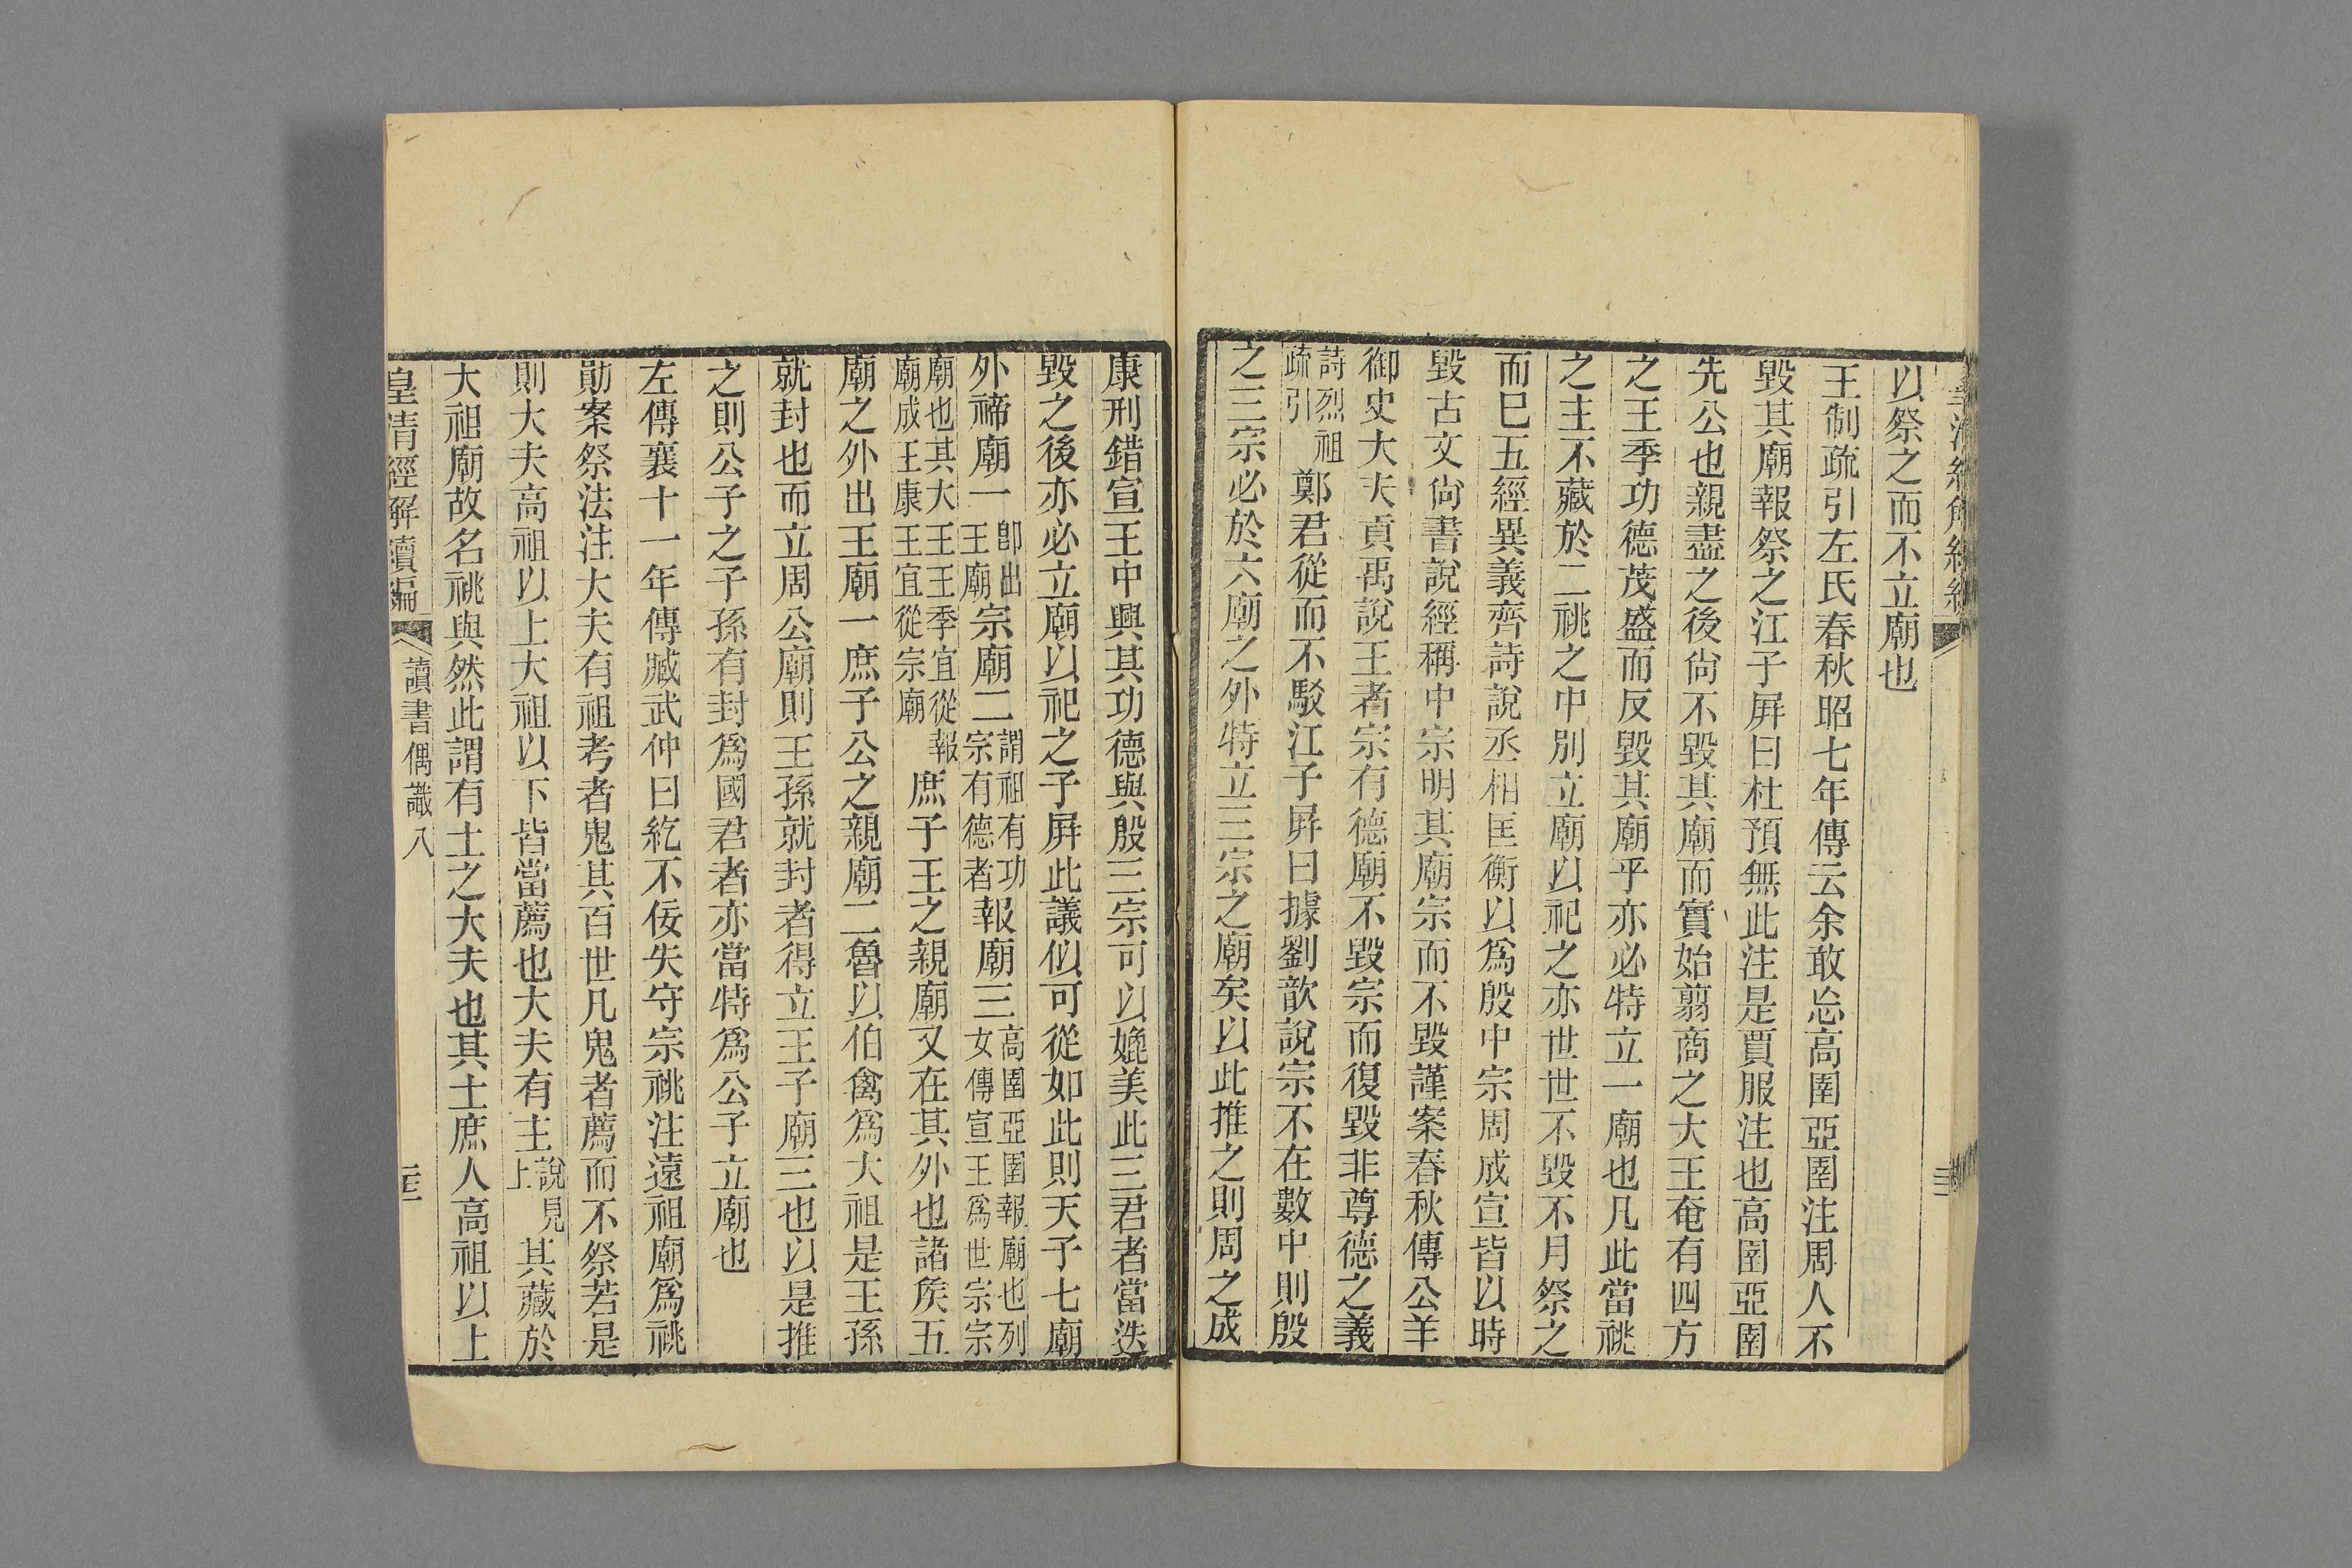 以祭之而不立廟也
王制疏引左氏春秋昭七年傳云余敢忘高圉亞圉注周人不
毀其廟報祭之江子屏曰杜預無此注是賈服注也高圉亞圉
先公也親盡之後尙不毀其廟而實始翦商之大王奄有四方
之王季功德茂盛而反毀其廟乎亦必特立一廟也凡此當祧
之主不藏於二祧之中別立廟以祀之亦世世不毀不月祭之
而已五經異義齊詩說丞相匡衡以爲殷中宗周成宣皆以時
毀古文尙書說經稱中宗明其廟宗而不毀謹案春秋傳公羊
御史大夫貢禹說王者宗有德廟不毀宗而復毀非尊德之義
詩烈祖疏引鄭君從而不駁江子屏曰據劉歆說宗不在數中則殷
之三宗必於六廟之外特立三宗之廟矣以此推之則周之成
康刑錯宣王中興其功德與殷三宗可以媲美此三君者當迭
毀之後亦必立廟以祀之子屏此議似可從如此則天子七廟
外禘廟一卽出王廟宗廟二謂祖有功宗有德者報廟三高圉亞圉報廟也列女傳宣王爲世宗宗
廟也其大王王季宜從報廟成王康王宜從宗廟庶子王之親廟又在其外也諸矦五
廟之外出王廟一庶子公之親廟二魯以伯禽爲大祖是王孫
就封也而立周公廟則王孫就封者得立王子廟三也以是推
之則公子之子孫有封爲國君者亦當特爲公子立廟也
左傳襄十一年傳臧武仲曰紇不佞失守宗祧注遠祖廟爲祧
勛案祭法注大夫有祖考者鬼其百世凡鬼者薦而不祭若是
則大夫高祖以上大祖以下皆當薦也大夫有主說見上其藏於
大祖廟故名祧與然此謂有土之大夫也其士庶人高祖以上
皇清經解續編
讀書偶識八